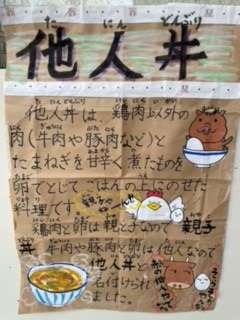 他人丼
たにんどんぶり
他人丼は、鶏肉以外の
肉(牛肉や豚肉など)と
たまねぎを甘辛く煮たものを
卵でとじて、ごはんの上にのせた
料理です。
鶏肉と卵は親と子なので親子
丼、牛肉や豚肉と卵は他人なので
他人丼と
名付けられ
ました。